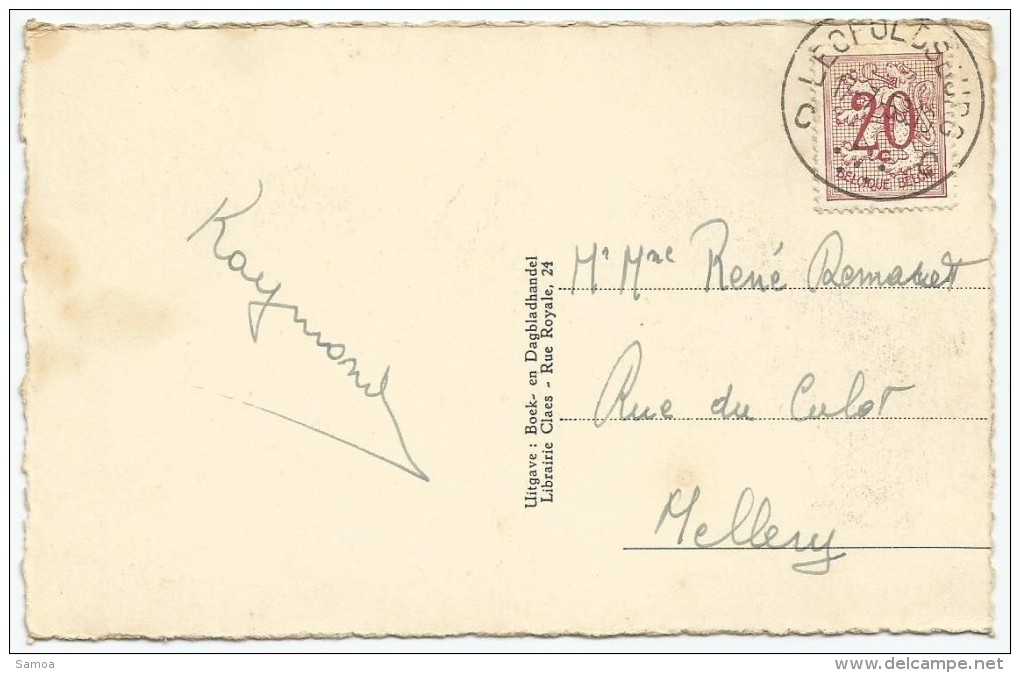 LEOPOLDSBURG
20
c
BELGIQUE BELGIE
Raymond
Uitgave : Boek- en Dagbladhandel
Librairie Claes - Rue Royale, 24
Mr Mme René
Rue du Culot
Mellery
Samoa
delcampe.net